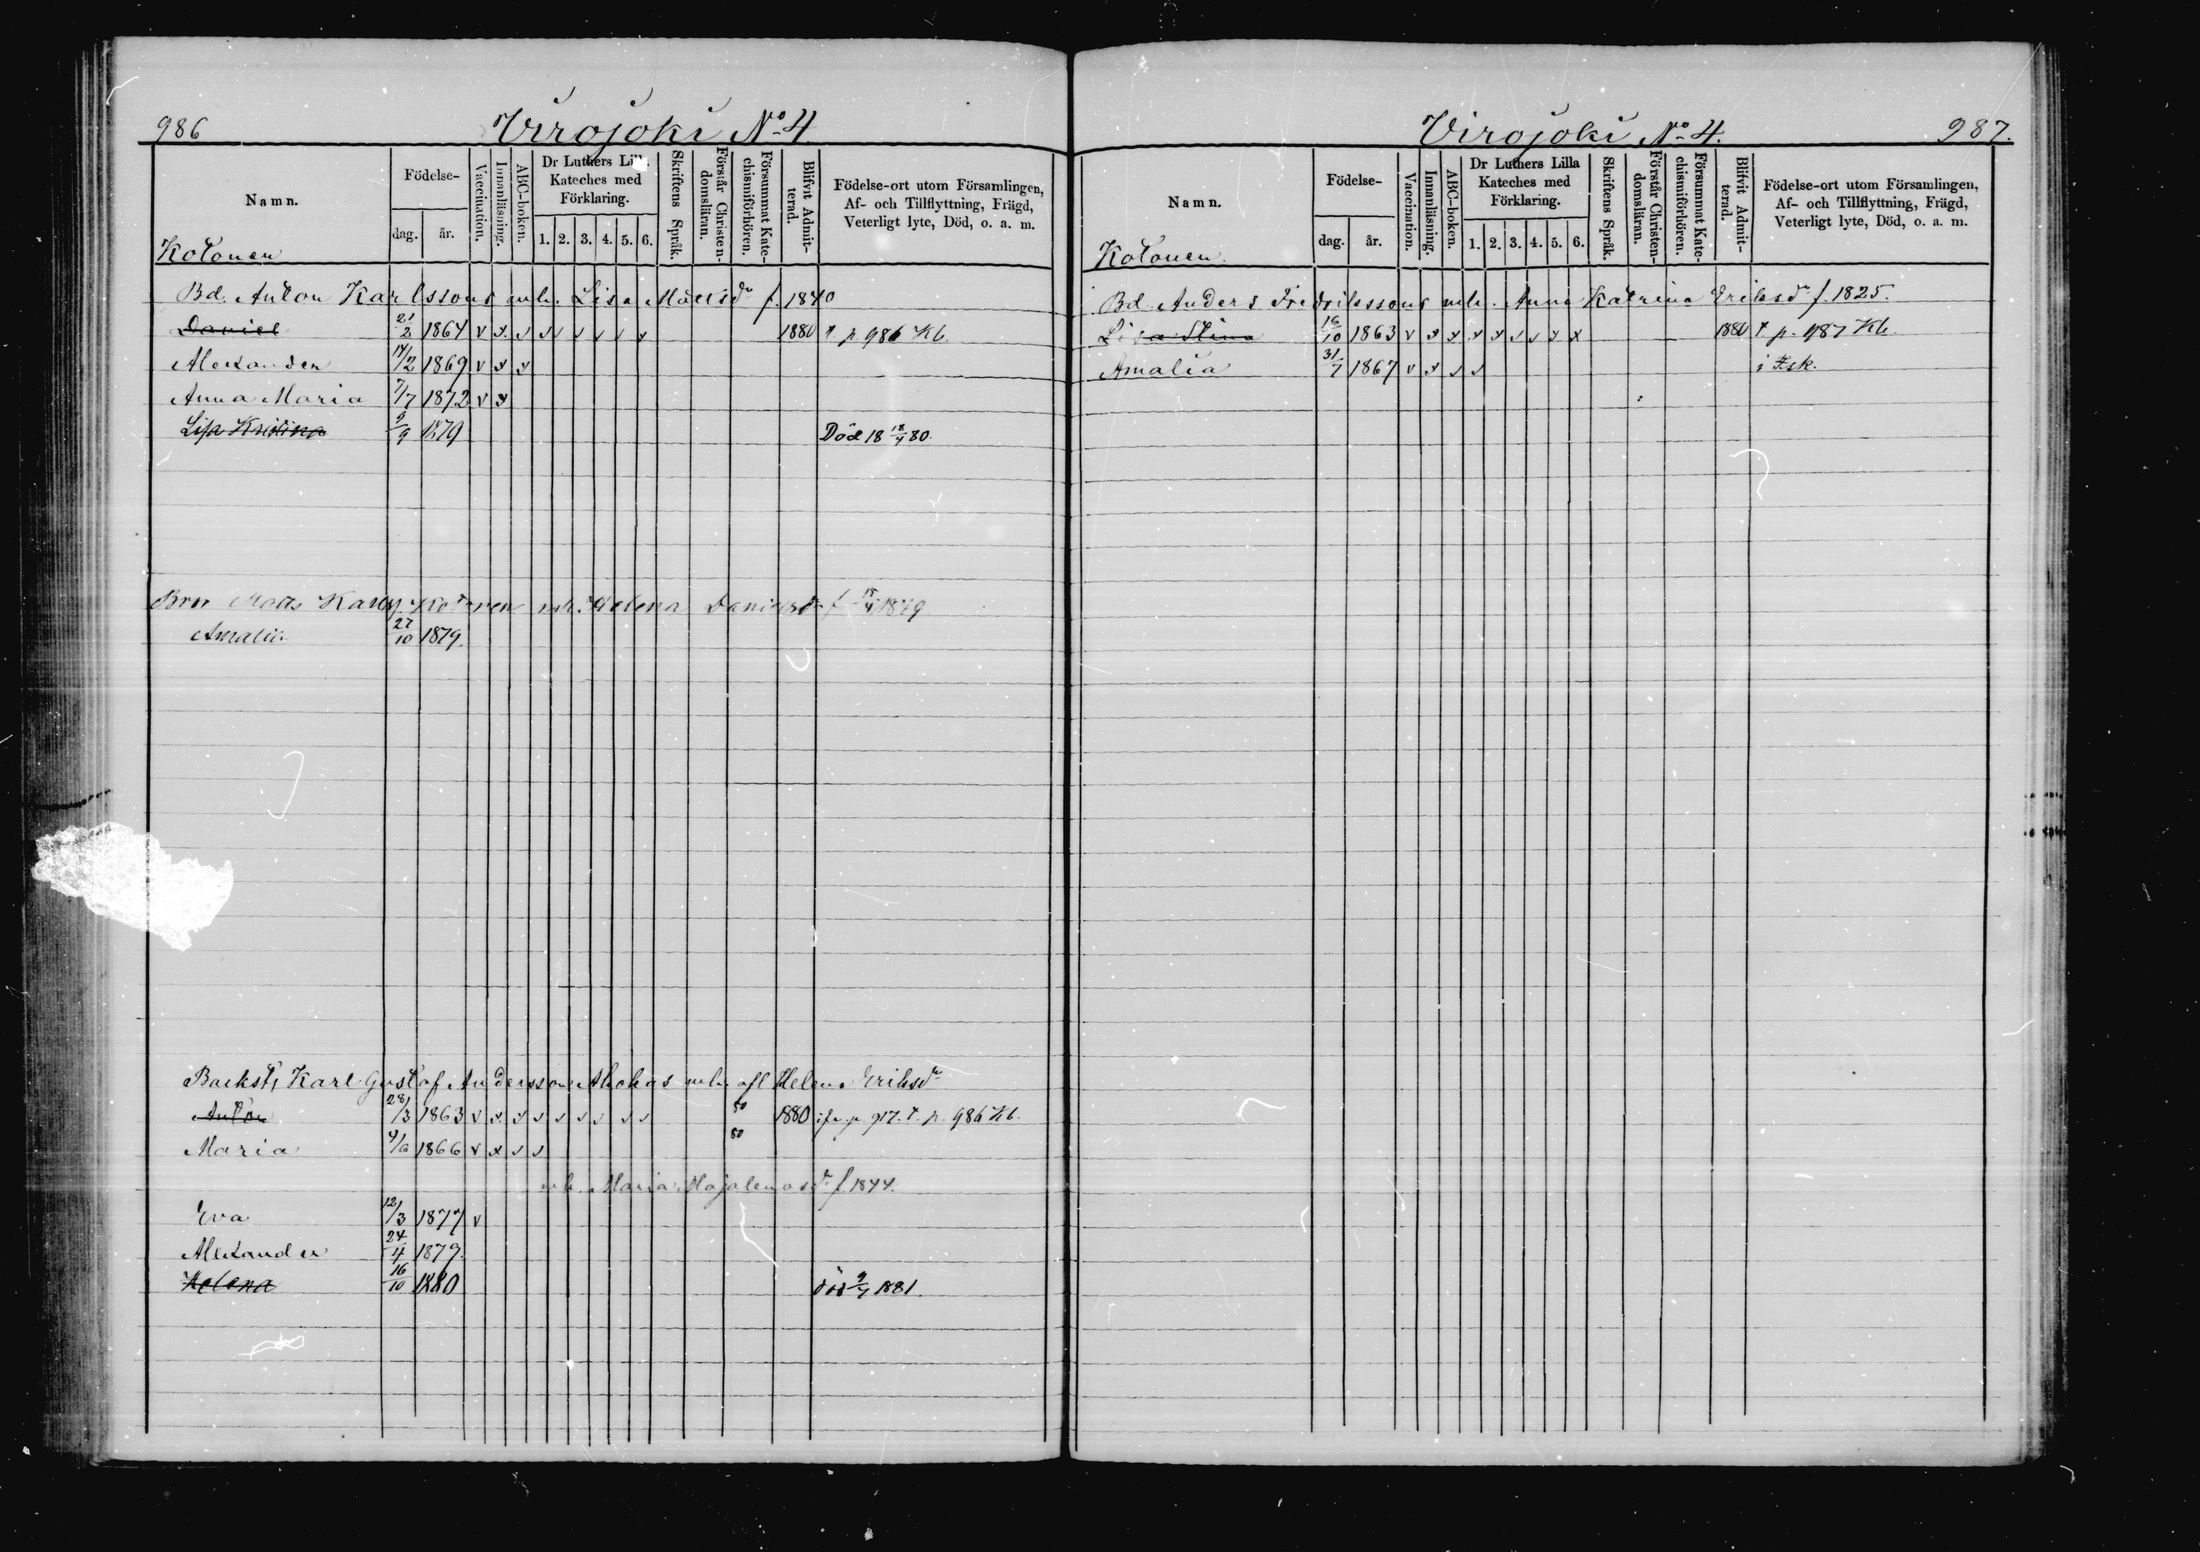 986
Virojoki No 4
Namn.
Födelse-
dag.
år.
Vaccination.
Innanläsning.
ABC-boken.
Dr Luthers Lilla
Kateches med
Förklaring.
1. 2. 3. 4. 5. 6.
Skriftens Språk.
Förstår Christen-
domsläran.
Försummat Kate-
chismiförhören.
Blifvit Admit-
terad.
Födelse-ort utom Församlingen,
Af- och Tillflyttning, Frägd,
Veterligt lyte, Död, o. a. m.
Kotonen
Bd. Anton Karlssons mh. Lisa Mattsdr f. 1840
Daniel 21/2 1864 v x v v v v v v x 1880 t p. 986 Kb
Alexander 14/2 1869 v x v
Anna Maria 7/7 1872 v x
Lisa Kristina 9/9 1879 Död 18 18/4 80.
Bror Matts Karlss. Kotonen mh. Helena Danielsdr f. 1849
Amalia 27/10 1879.
Backst. Karl Gustaf Andersson Ahokas mh. afl Helena Eriksdr
Anton 28/3 1863 v x v v v v v v v 80 1880 p. 917. t. p. 986 Kb.
Maria 4/6 1866 v x v v 80
mh. Maria Majalenasdr f 1844.
Eva 12/3 1877 v
Alexander 24/4 1879.
Helena 16/10 1880 död 9/4 1881.
Virojoki No 4.
987.
Namn.
Födelse-
dag.
år.
Vaccination.
Innanläsning.
ABC-boken.
Dr Luthers Lilla
Kateches med
Förklaring.
1. 2. 3. 4. 5. 6.
Skriftens Språk.
Förstår Christen-
domsläran.
Försummat Kate-
chismiförhören.
Blifvit Admit-
terad.
Födelse-ort utom Församlingen,
Af- och Tillflyttning, Frägd,
Veterligt lyte, Död, o. a. m.
Kotonen.
Bd. Anders Fredrikssons mh. Anna Katrina Eriksdr f. 1825.
Lisa Stina 16/10 1863 v x x x x v v x x 1880 t p. 987 Kb.
Amalia 31/7 1867 v x v v i F.sk.